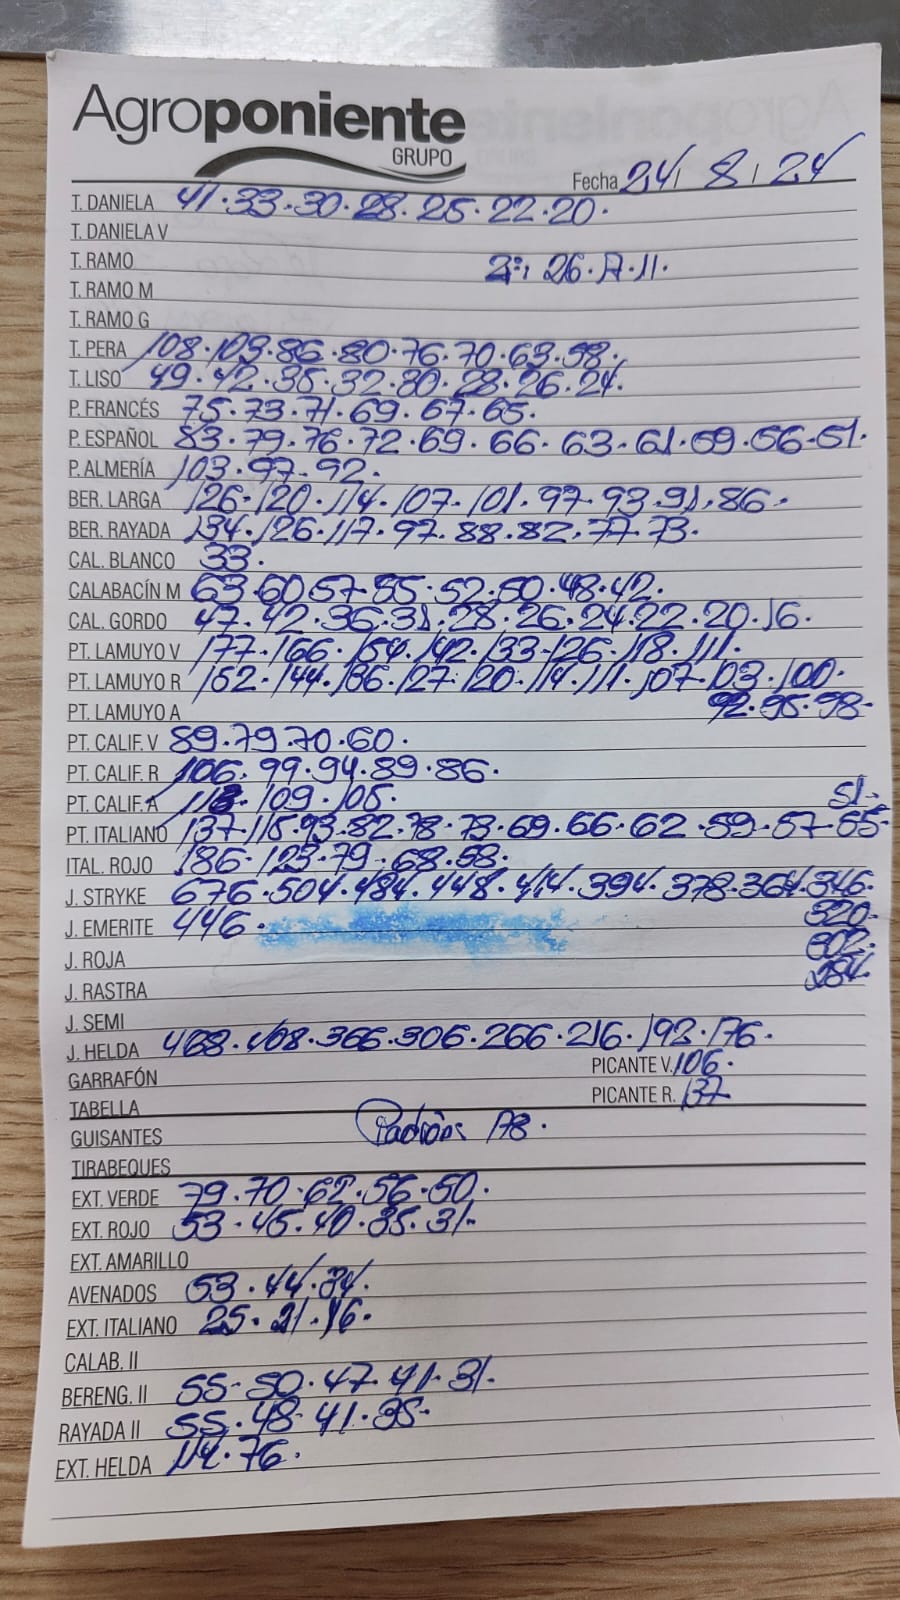 Agroponiente
GRUPO
Fecha 24 / 8 / 24
T. DANELA 41.33.30.28.25.22.20.
T. DANIELA V
T. RAMO 2ª: 26.17.11.
T. RAMO M
T. RAMO G
T. PERA 108.103.86.80.76.70.63.58.
T. LISO 49.42.35.32.30.28.26.24.
P. FRANCÉS 75.73.71.69.67.65.
P. ESPAÑOL 83.79.76.72.69.66.63.61.59.56.51.
P. ALMERÍA 103.97.92.
BER. LARGA 126.120.114.107.101.97.93.91.86.
BER. RAYADA 134.126.117.97.88.82.77.73.
CAL. BLANCO 33.
CALABACÍN M 63.60.57.55.52.50.48.42.
CAL. GORDO 47.42.36.31.28.26.24.22.20.16.
PT. LAMUYO V 177.166.154.142.133.126.118.111.
PT. LAMUYO R 152.144.136.127.120.114.111.107.103.100.
PT. LAMUYO A 92.95.98.
PT. CALIF. V 89.79.70.60.
PT. CALIF. R 106.99.94.89.86.
PT. CALIF. A 113.109.105. 51.
PT. ITALIANO 137.115.93.82.78.73.69.66.62.59.57.55.
ITAL. ROJO 186.123.79.68.58.
J. STRYKE 676.504.484.448.414.394.378.364.346.
J. EMERITE 446. 320.
J. ROJA 302.
J. RASTRA 284.
J. SEMI
J. HELDA 468.408.366.306.266.216.192.176.
GARRAFÓN PICANTE V. 106.
TABELLA PICANTE R. 137
GUISANTES Padrón: 178.
TIRABEQUES
EXT. VERDE 79.70.62.56.50.
EXT. ROJO 53.45.40.35.31.
EXT. AMARILLO
AVENADOS 53.44.34.
EXT. ITALIANO 25.21.16.
CALAB. II
BERENG. II 55.50.47.41.31.
RAYADA II 55.48.41.35.
EXT. HELDA 114.76.